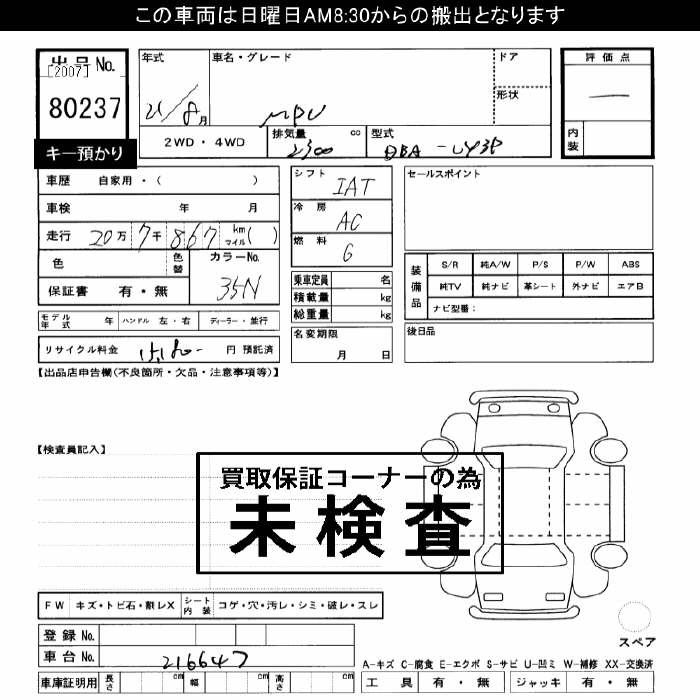 この車両は日曜日AM8:30からの搬出となります
出品番号 No.
[2007]
80237
キー預かり
年式 21/8月
車名・グレード MPV
ドア
形状
2WD・4WD
排気量 cc 2300
型式 DBA-LY3P
評価点
―
内装
車歴 自家用・( )
車検 年 月
走行 20万 7千 867 km マイル( )
色 色替
カラーNo. 35N
保証書 有・無
モデル年式 年 ハンドル 左・右 ディーラー・並行
リサイクル料金 15,180- 円 預託済
シフト IAT
冷房 AC
燃料 G
乗車定員 名
積載量 kg
総重量 kg
名変期限 月 日
セールスポイント
装備品
S/R 純A/W P/S P/W ABS
純TV 純ナビ 革シート 外ナビ エアB
ナビ型番:
後日品
【出品店申告欄(不良箇所・欠品・注意事項等)】
【検査員記入】
買取保証コーナーの為
未検査
FW キズ・トビ石・割レX シート内装 コゲ・穴・汚レ・シミ・破レ・スレ
登録 No.
車台 No. 216647
車庫証明用 長さ cm 幅 cm 高さ cm
スペア
A-キズ C-腐食 E-エクボ S-サビ U-凹ミ W-補修 XX-交換済
工具 有・無 ジャッキ 有・無